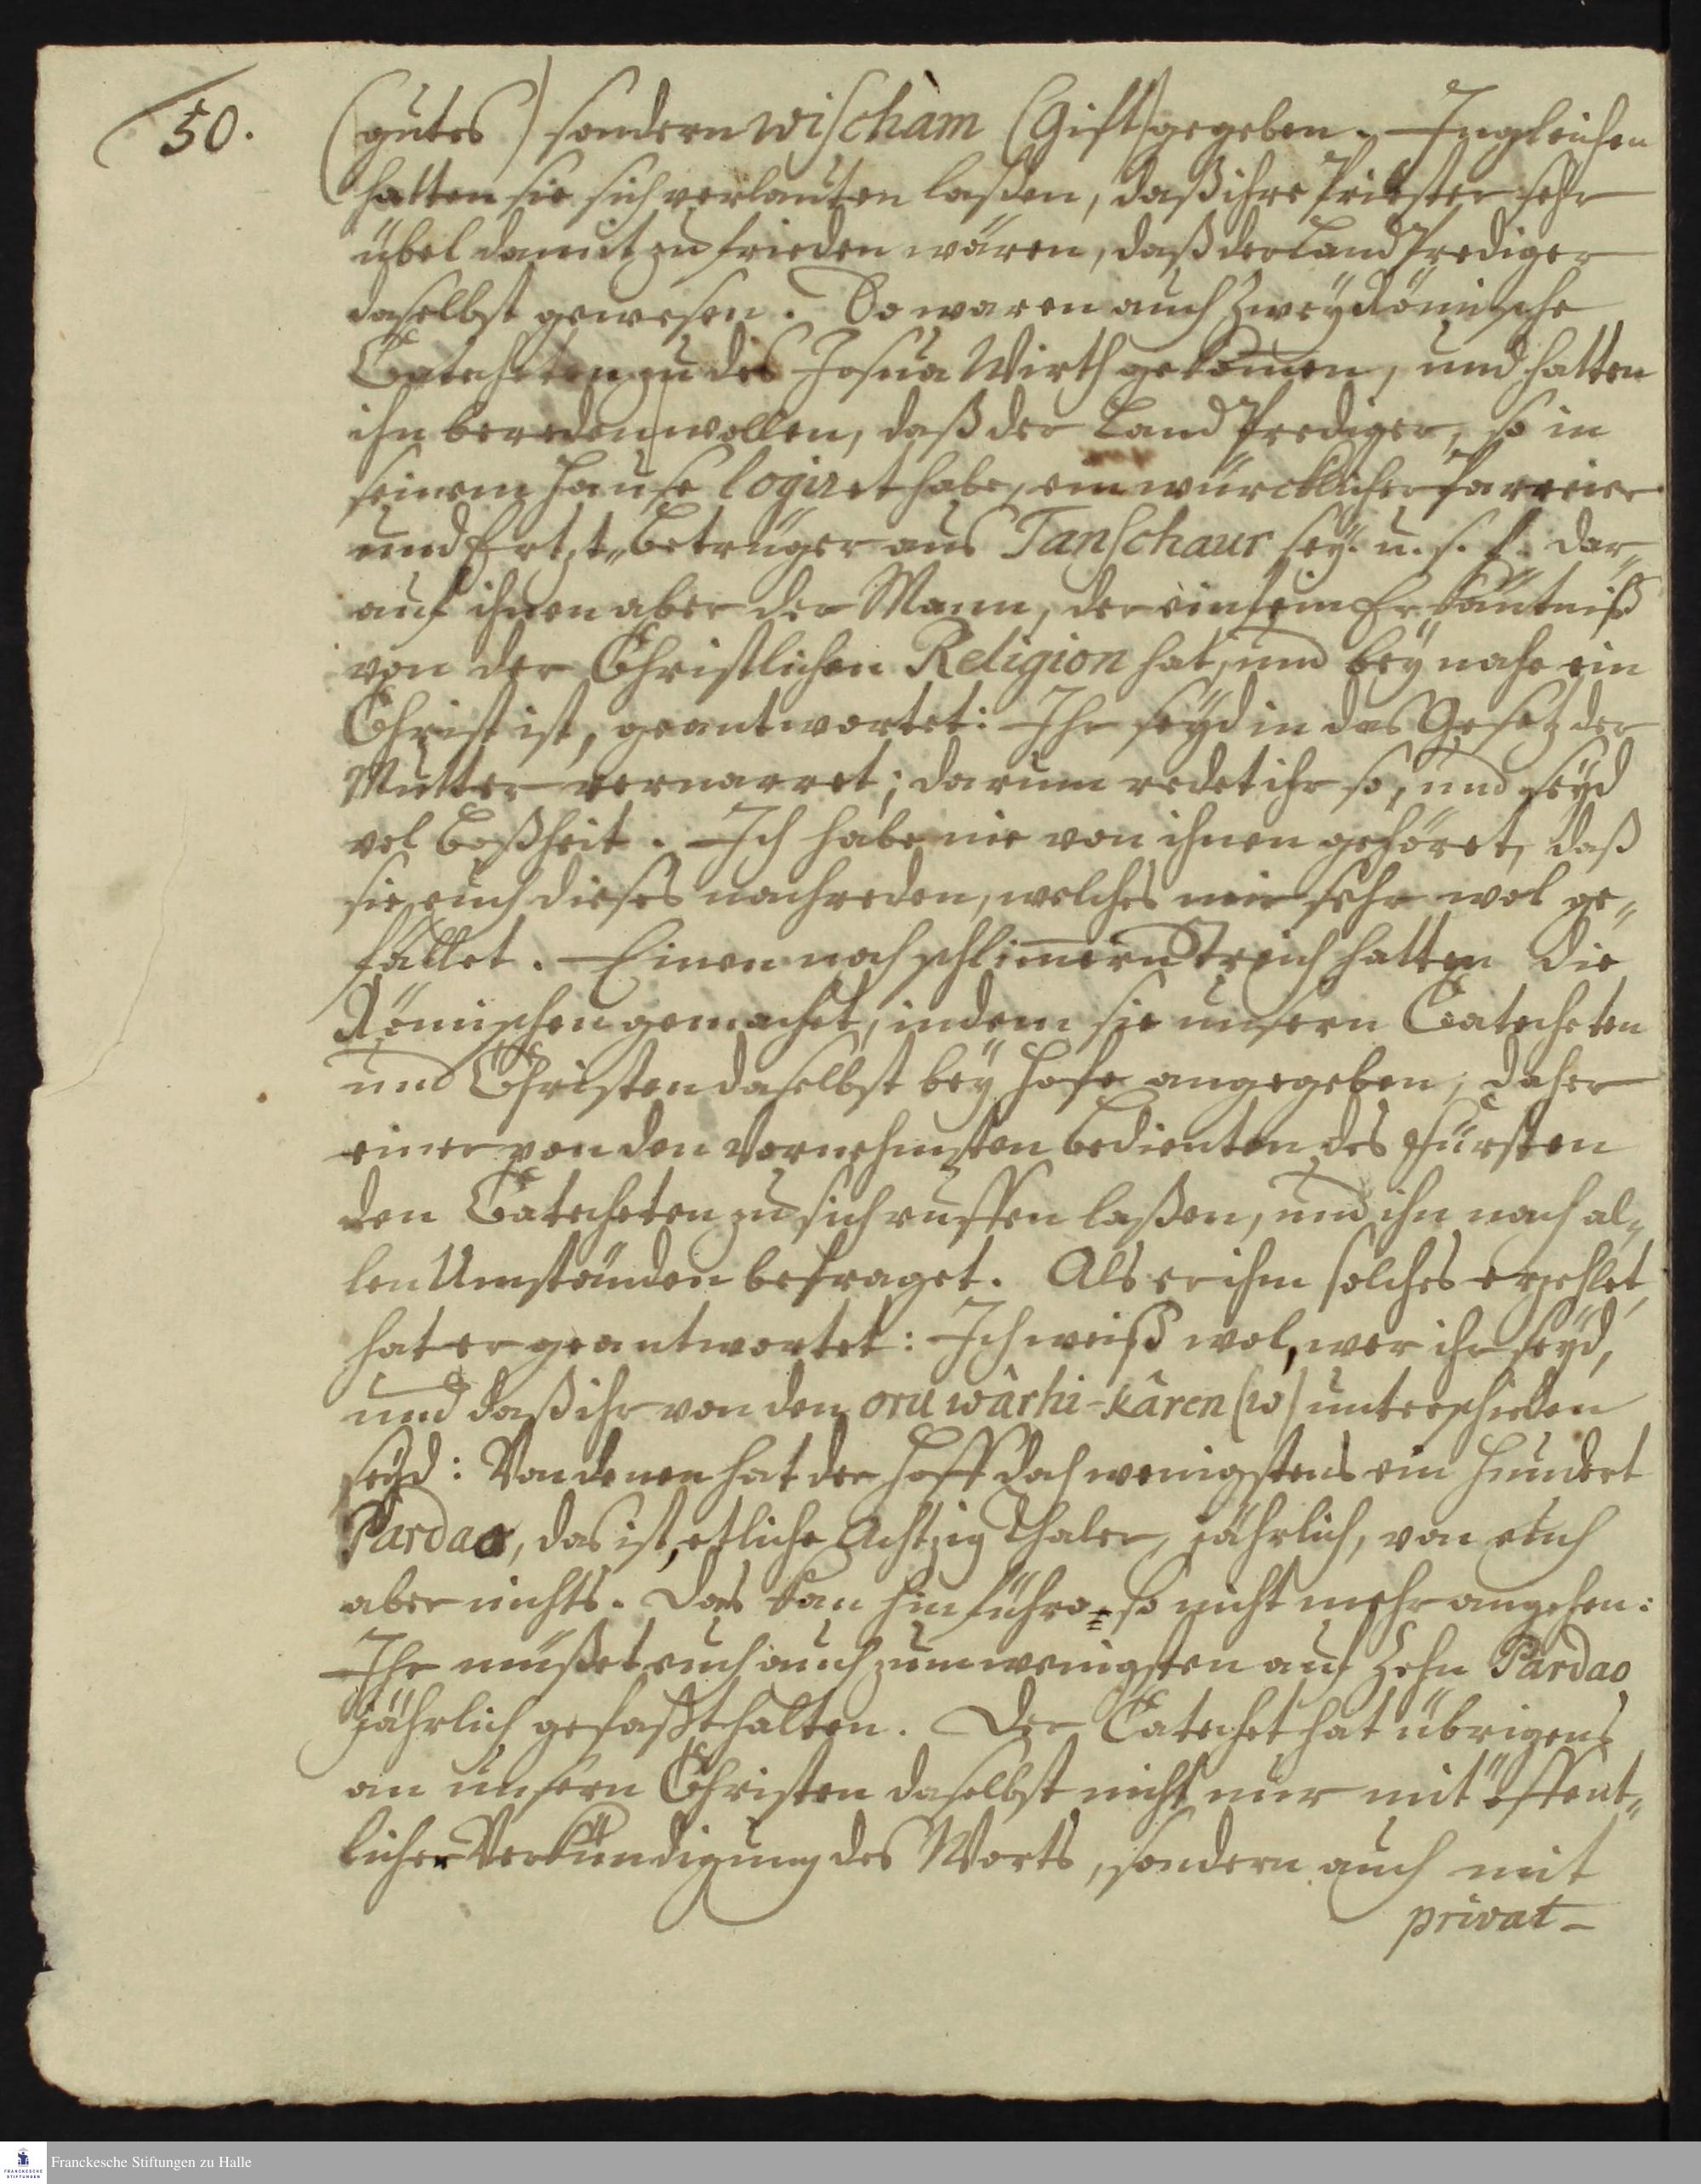 50.
(gutes) sondern wischam (Gift) gegeben. Ingleichen
hatten sie sich verlauten laßen, daß ihre Priester sehr
übel damit zu frieden wären, daß der Land Prediger
daselbst gewesen. So waren auch zwey Römische
Catecheten zu des Josua Wirth gekom̄en, und hatten
ihn bereden wollen, daß der Land Prediger, so in
seinem Hause logiret habe, ein würcklicher Parreier
und Ertzt„Betrüger aus Tanschaur sey. u. s. f. Dar„
auf ihnen aber der Mann, der ein fein Erkäntniß
von der Christlichen Religion hat, und bey nahe ein
Christ ist, geantwortet: Ihr seyd in das Gesetz der
Mutter vernarret; darum redet ihr so, und seyd
vol Boßheit. Ich habe nie von ihnen gehöret, daß
sie euch dieses nachreden, welches mir sehr wol ge„
fället. Einen noch schlim̄ern Streich hatten die
Römischen gemachet, indem sie unsern Catecheten
und Christen daselbst bey Hofe angegeben; daher
einer von den Vornehmsten Bedienten des Fürsten
den Catecheten zu sich ruffen laßen, und ihn nach al„
len Umständen befraget. Als er ihm solches erzehlet,
hat er geantwortet: Ich weiß wol, wer ihr seyd,
und daß ihr von den oru wârhi-kâren (w) unterschieden
seyd: Von denen hat der Hoff doch wenigstens ein Hundert
Pardao, das ist, etliche Achtzig Thaler, jährlich, von euch
aber nichts. Das kan hinführo so nicht mehr angehen:
Ihr müßet euch auch zum wenigsten auf Zehn Pardao
jährlich gefaßt halten. Der Catechet hat übrigens
an unsern Christen daselbst nicht nur mit öffent„
licher Verkündigung des Worts, sondern auch mit
privat-
Franckesche Stiftungen zu Halle